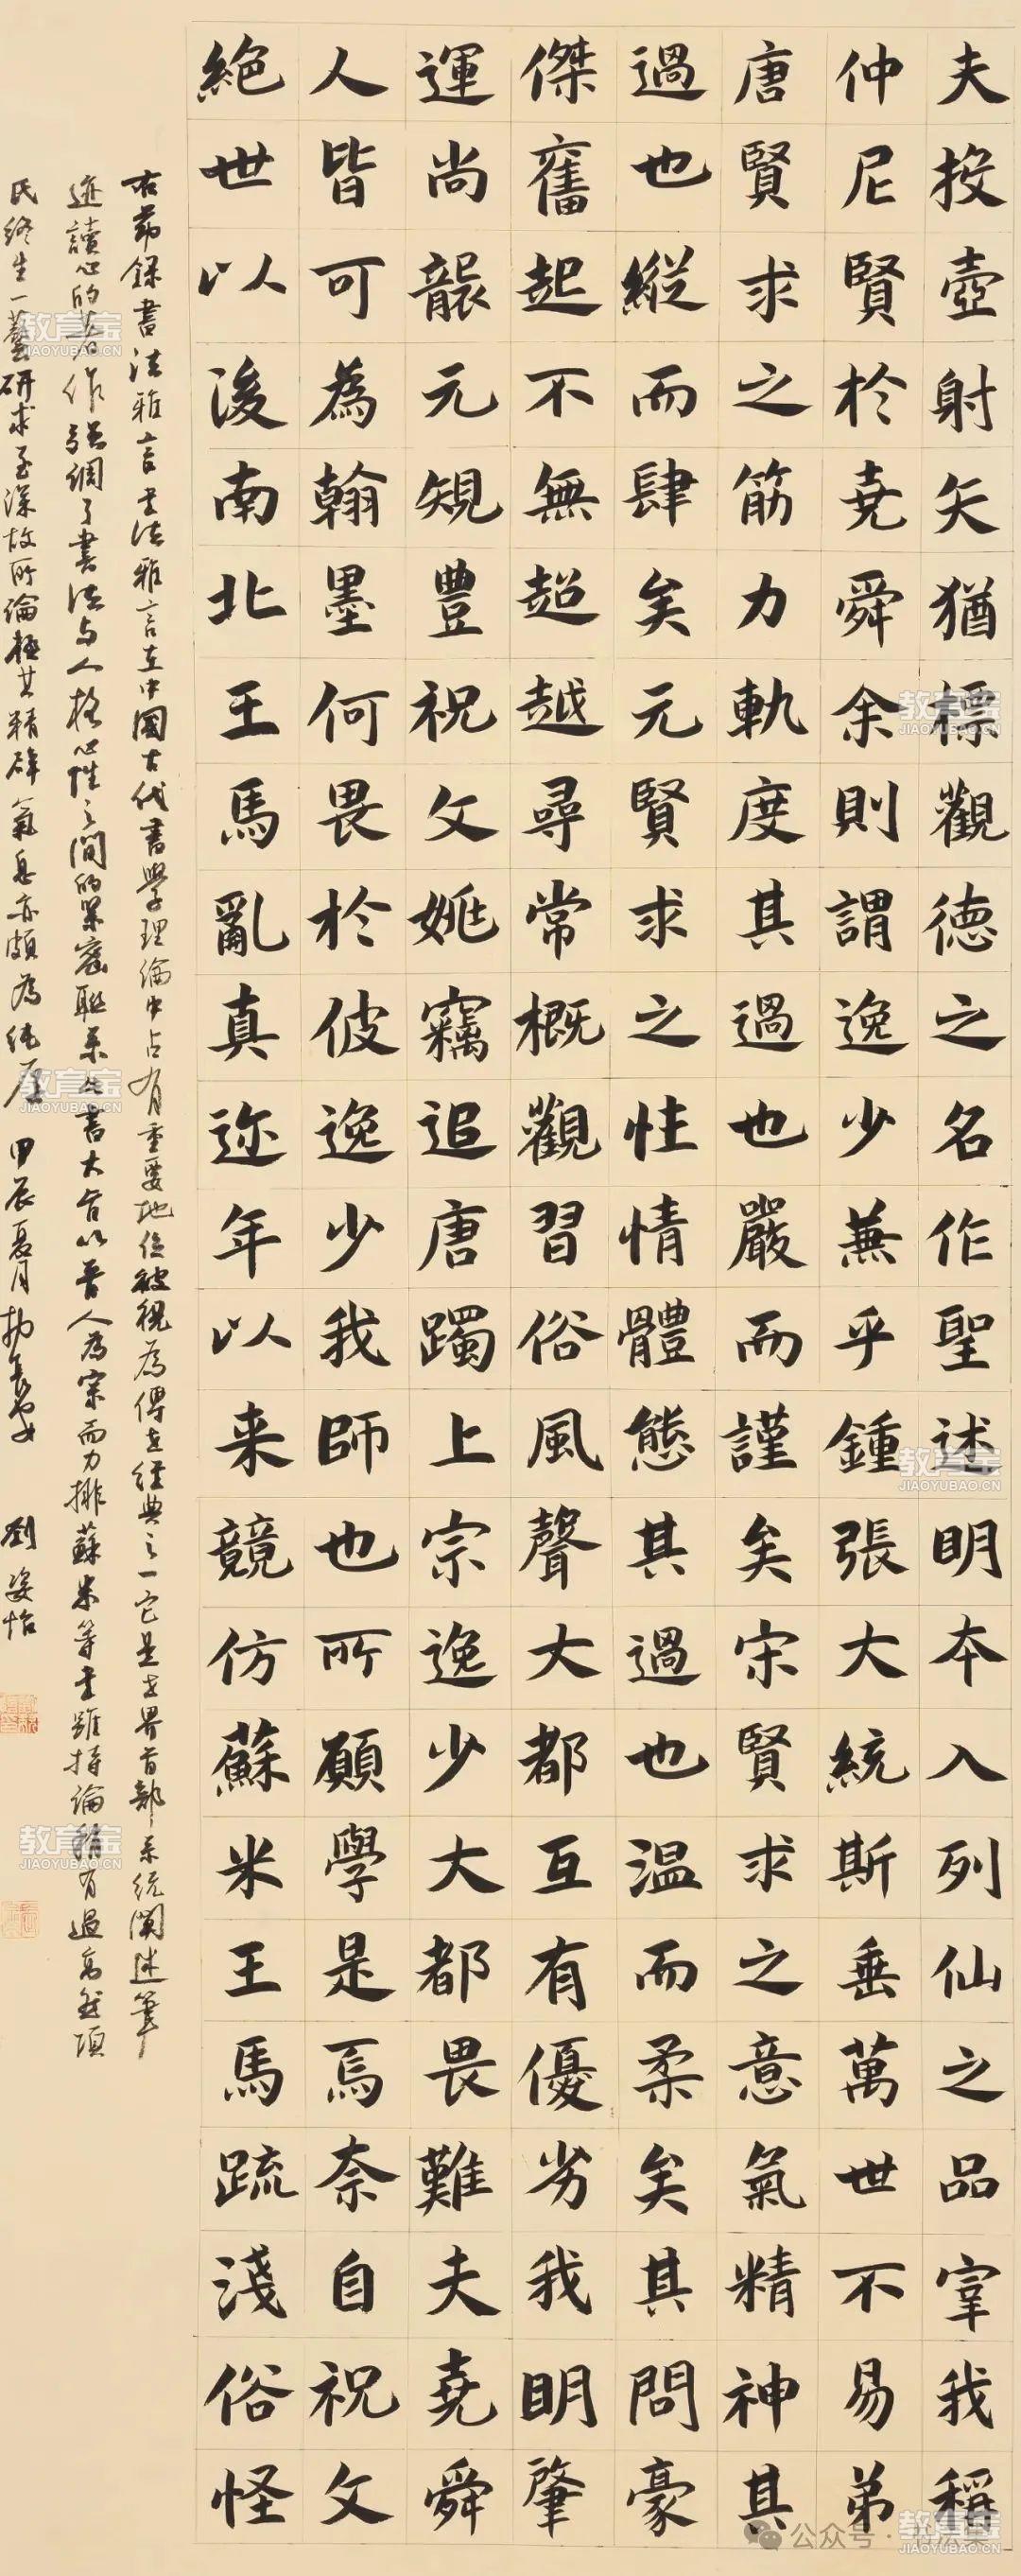 夫投壺射矢猶標觀德之名作聖述明本入列仙之品宰我稱
仲尼賢於堯舜余則謂逸少兼乎鍾張大統斯垂萬世不易弟
唐賢求之筋力軌度其過也嚴而謹矣宋賢求之意氣精神其
過也縱而肆矣元賢求之性情體態其過也温而柔矣其問豪
傑奮起不無超越尋常概觀習俗風聲大都互有優劣我明肇
運尚襲元規豊祝文姚竊追唐躅上宗逸少大都畏難夫堯舜
人皆可為翰墨何畏於彼逸少我師也所願學是焉奈自祝文
絕世以後南北王馬亂真迩年以来競仿蘇米王馬疏淺俗怪
右節録書法雅言書法雅言在中國古代書學理論中占有重要地位被視為傳世經典之一它是世界首部系統闡述筆
迹讀心的著作强調了書法与人格心性之間的緊密聯系此書大旨以晋人為宗而力排蘇米等書雖持論稍有過高然項
氏終生一藝研求至深故所論極其精碎氣息亦頗為純厚 甲辰夏月 劉姿怡
教育宝
JIAOYUBAO.CN
教育宝
JIAOYUBAO.CN
教育宝
JIAOYUBAO.CN
教育宝
JIAOYUBAO.CN
教育宝
JIAOYUBAO.CN
JIAOYUBAO.CN
公众号